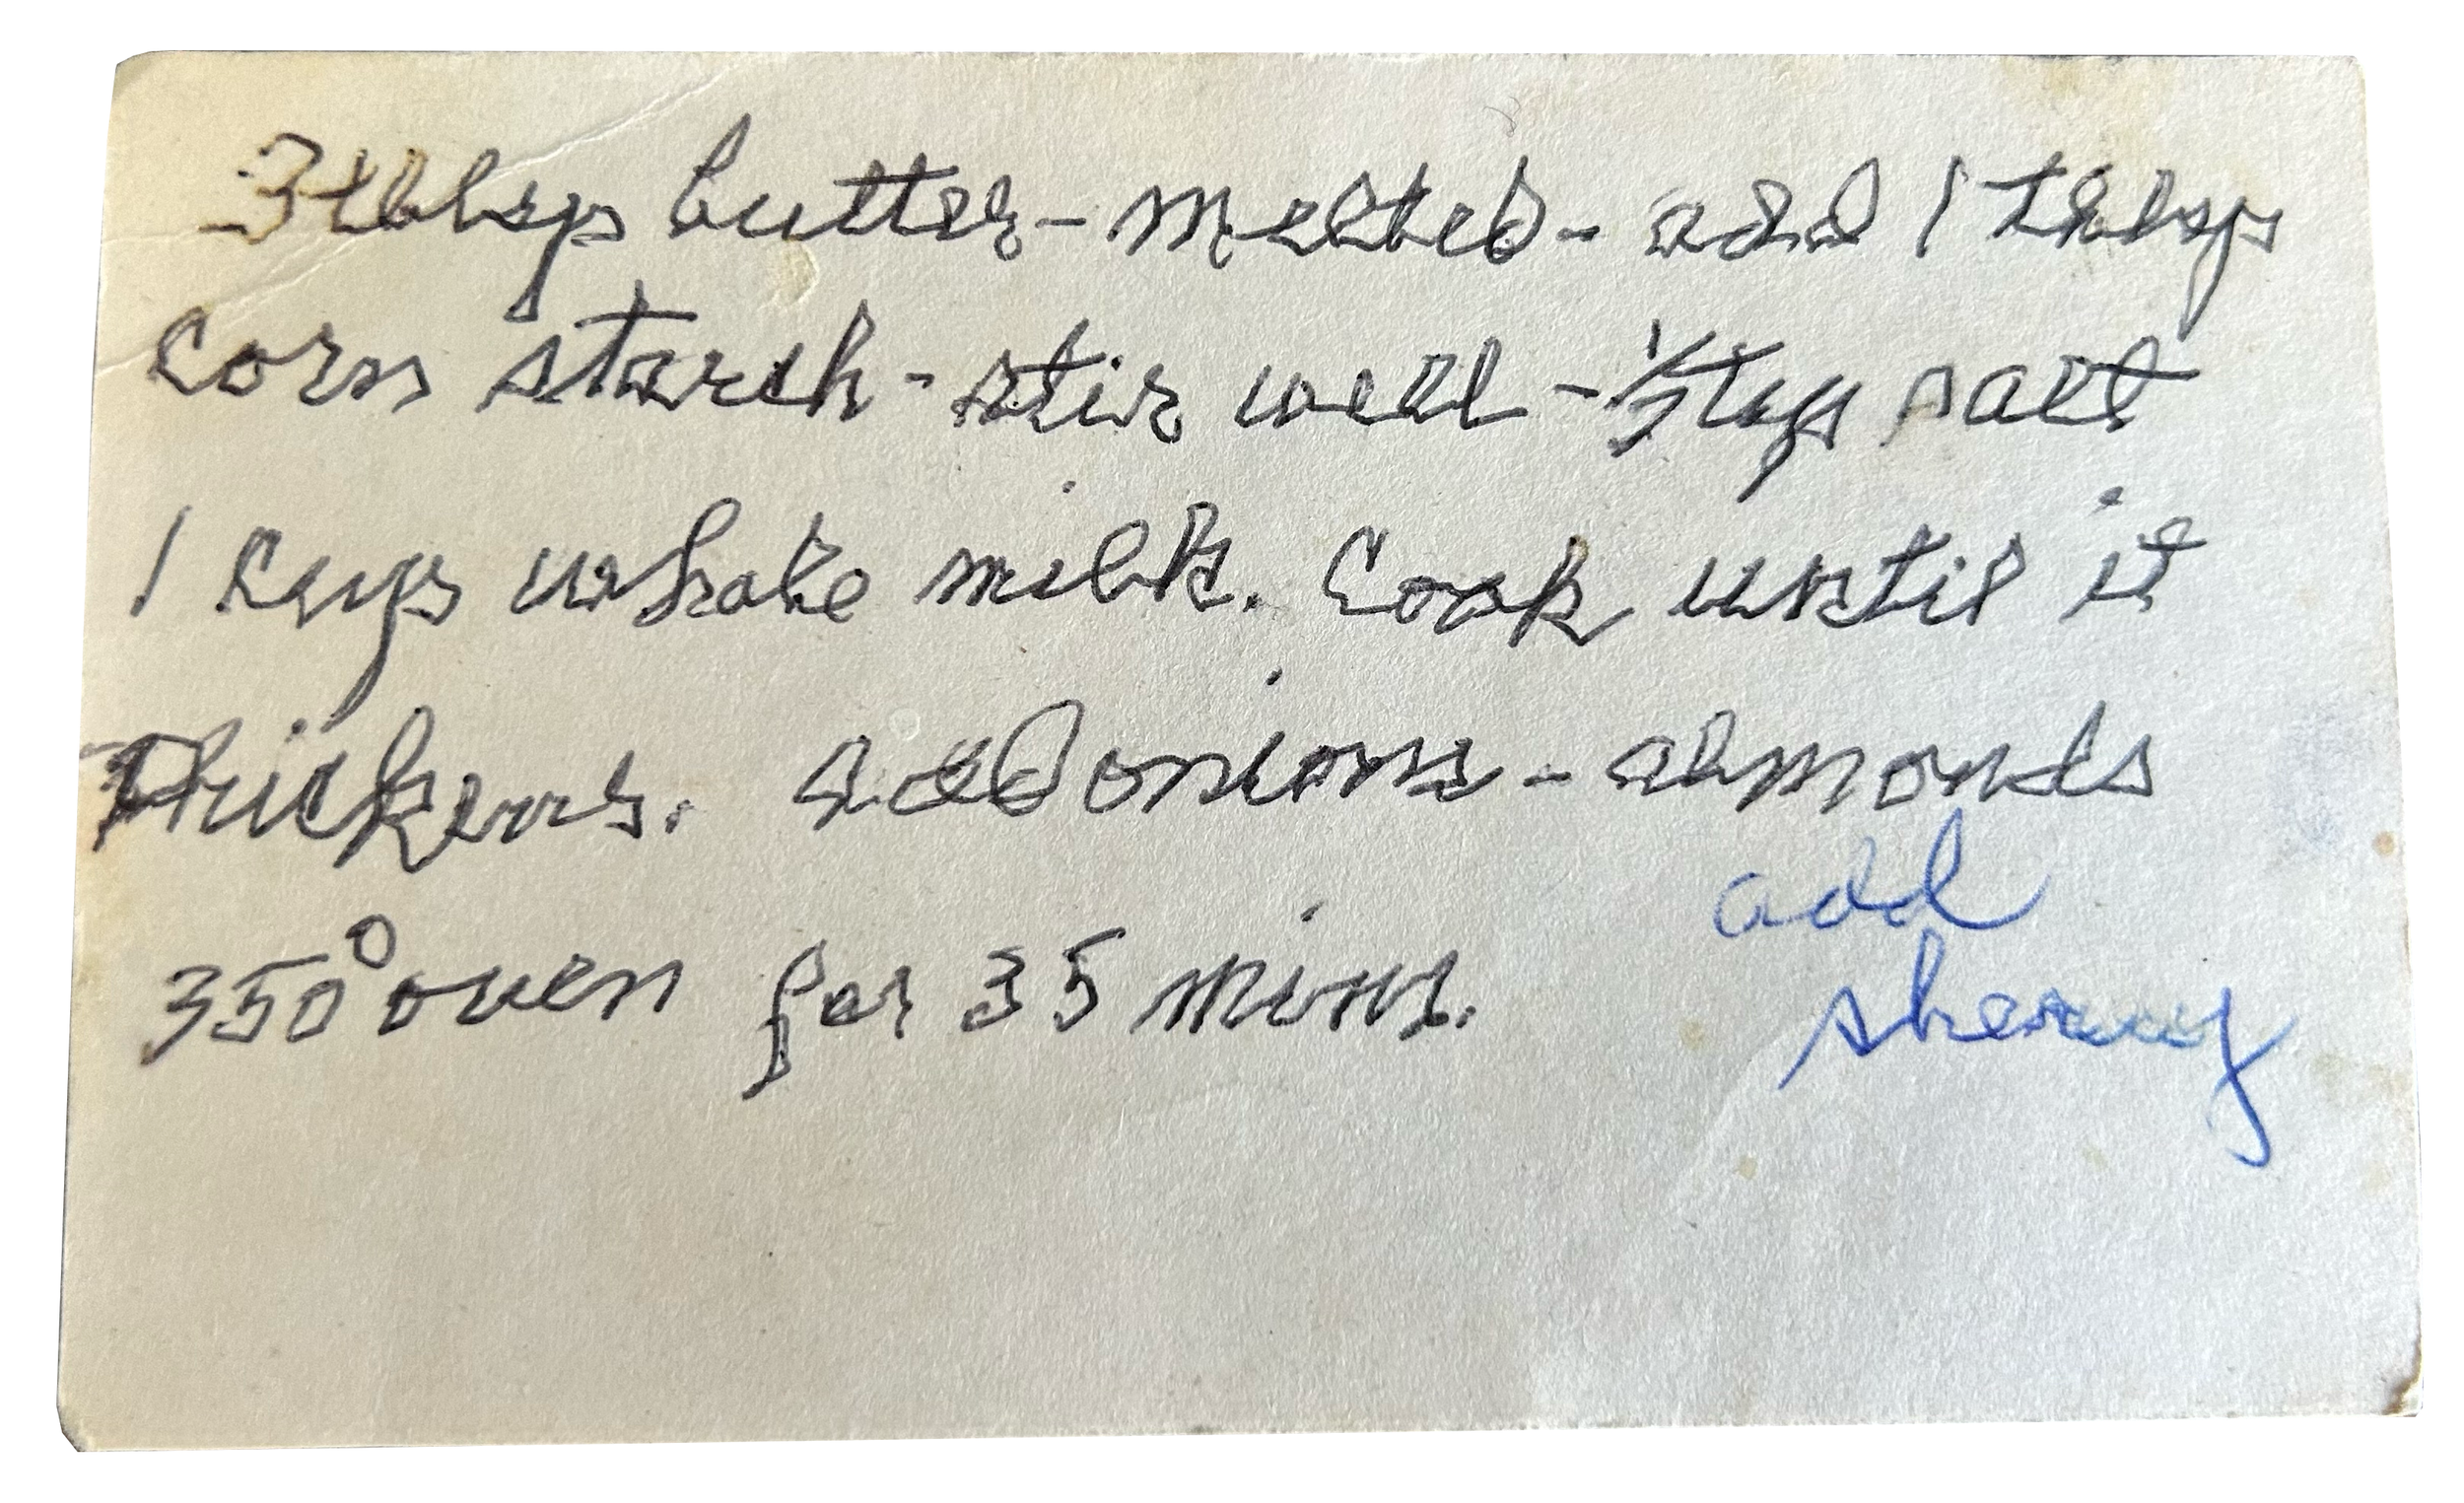 3 tblsp butter - melted - add 1 tblsp
corn starch - stir well - 1/2 tsp salt
1 cup whole milk. Cook until it
Thickens. add onions - almonds
add
350° oven for 35 mins.
sherry